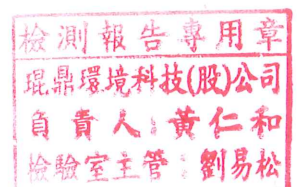 檢測報告專用章
琨鼎環境科技(股)公司
負責人：黃仁和
檢驗室主管：劉易松